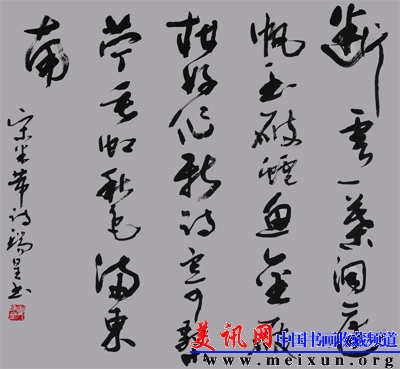 斷雲一葉洞庭
帆玉破鱸魚金破
柑好作新詩寄桑
苧垂虹秋色满東
南
宋米芾诗瑞呈书
美讯网 中国书画收藏频道
www.meixun.org